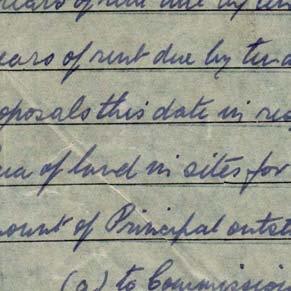 ears of rent due by ten
ears of rent due by ten
oposals this date in reg
ea of land in sites for
ount of Principal outst
(a) to Commission